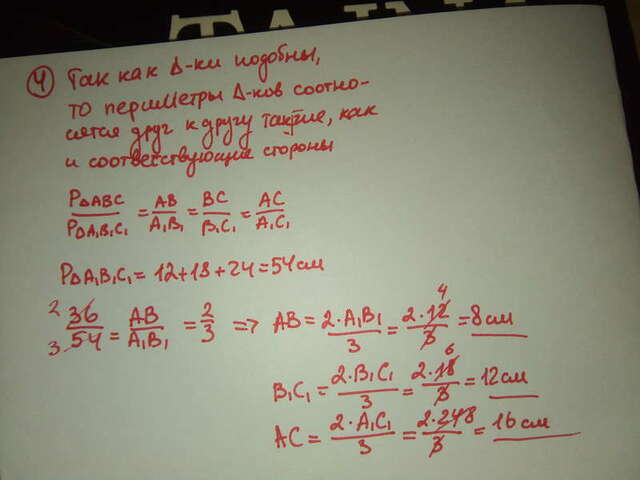 ④ Так как Δ-ки подобны,
то периметры Δ-ков соотно-
сятся друг к другу также, как
и соответсвующие стороны
PΔABC/PΔA₁B₁C₁ = AB/A₁B₁ = BC/B₁C₁ = AC/A₁C₁
PΔA₁B₁C₁ = 12+18+24=54см
2 36/3 54 = AB/A₁B₁ = 2/3 => AB = 2·A₁B₁/3 = 2·12 4/3 = 8см
B₁C₁ = 2·B₁C₁/3 = 2·18 6/3 = 12см
AC = 2·A₁C₁/3 = 2·24 8/3 = 16см